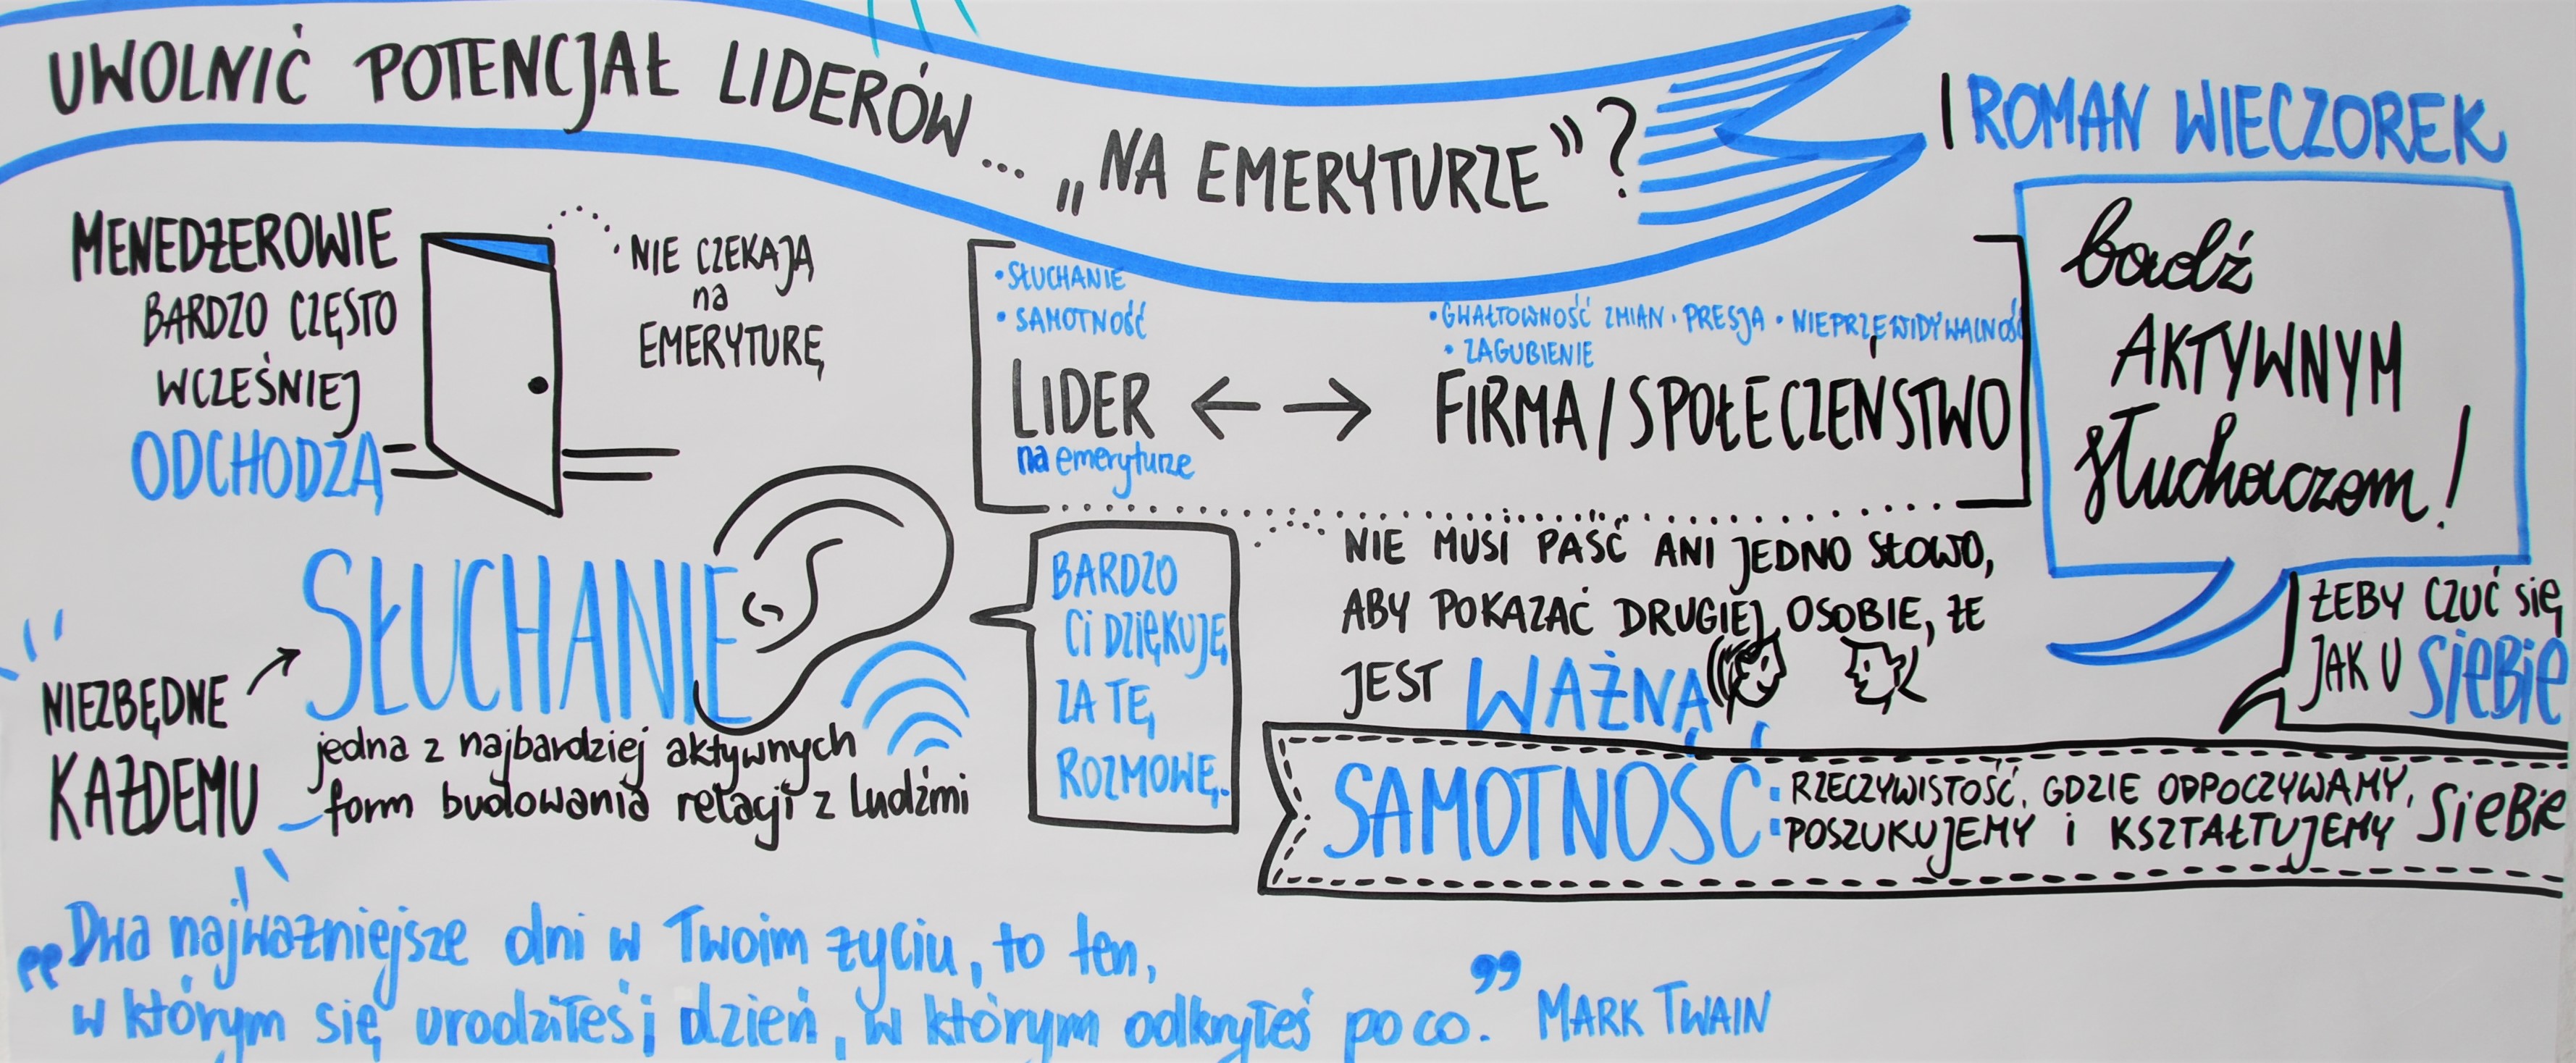 UWOLNIĆ POTENCJAŁ LIDERÓW... „NA EMERYTURZE”?
| ROMAN WIECZOREK
MENEDŻEROWIE
BARDZO CZĘSTO
WCZEŚNIEJ
ODCHODZĄ
NIE CZEKAJĄ
na
EMERYTURĘ
• SŁUCHANIE
• SAMOTNOŚĆ
LIDER
na emeryturze
• GWAŁTOWNOŚĆ ZMIAN • PRESJA • NIEPRZEWIDYWALNOŚĆ
• ZAGUBIENIE
FIRMA/SPOŁECZEŃSTWO
bądź
AKTYWNYM
słuchaczem!
NIEZBĘDNE
KAŻDEMU
SŁUCHANIE
jedna z najbardziej aktywnych
form budowania relacji z ludźmi
BARDZO
Ci DZIĘKUJĘ
ZA TĘ
ROZMOWĘ.
NIE MUSI PAŚĆ ANI JEDNO SŁOWO,
ABY POKAZAĆ DRUGIEJ OSOBIE, ŻE
JEST WAŻNA
ŻEBY CZUĆ SIĘ
JAK U SIEBIE
SAMOTNOŚĆ: RZECZYWISTOŚĆ, GDZIE ODPOCZYWAMY,
POSZUKUJEMY i KSZTAŁTUJEMY SIEBIE
„Dwa najważniejsze dni w Twoim życiu, to ten,
w którym się urodziłeś i dzień, w którym odkryłeś po co.” MARK TWAIN